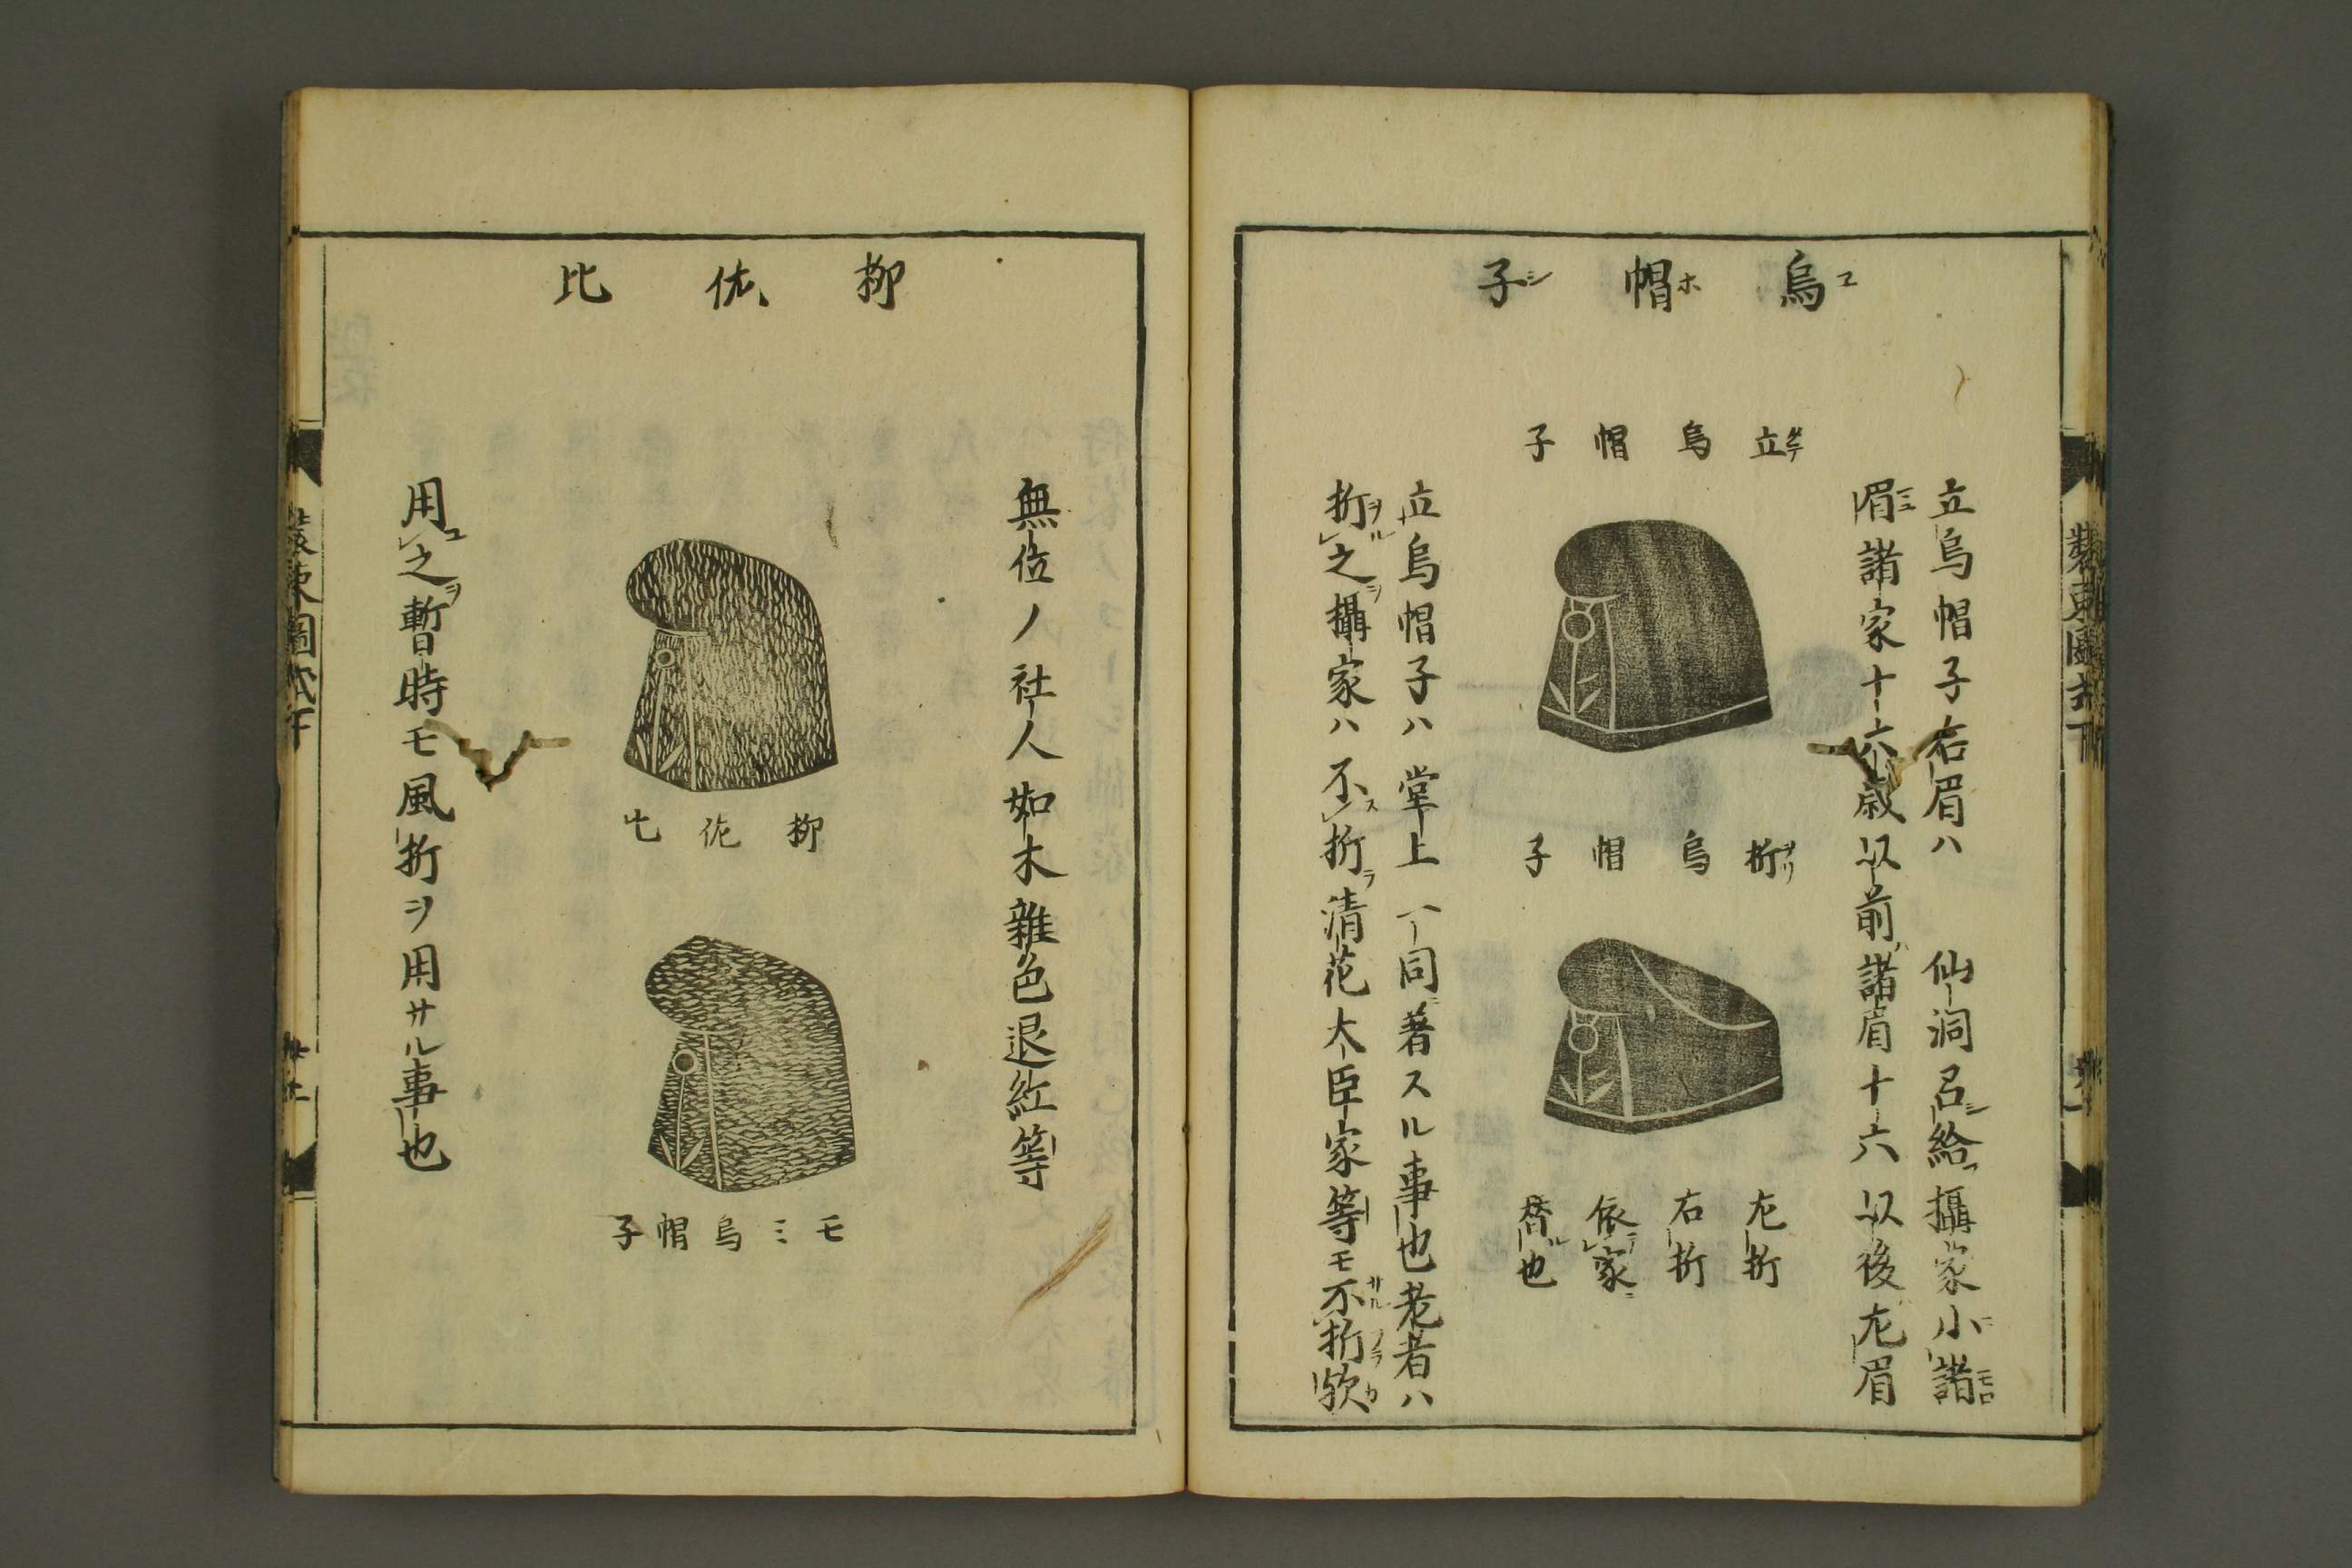 烏帽子
エホシ
立烏帽子右眉ハ　仙洞召給攝家小諸
眉諸家十六歳以前諸眉十六以後左眉
立烏帽子
折烏帽子
左折
右折
依家
替也
立烏帽子ハ堂上一同著スル事也老者ハ
折之攝家ハ不折清花大臣家等モ不折歟
裝束圖式下
柳佐比
無位ノ社人如木雜色退紅等
柳佐比
モミ烏帽子
用之暫時モ風折ヲ用サル事也
裝束圖式下